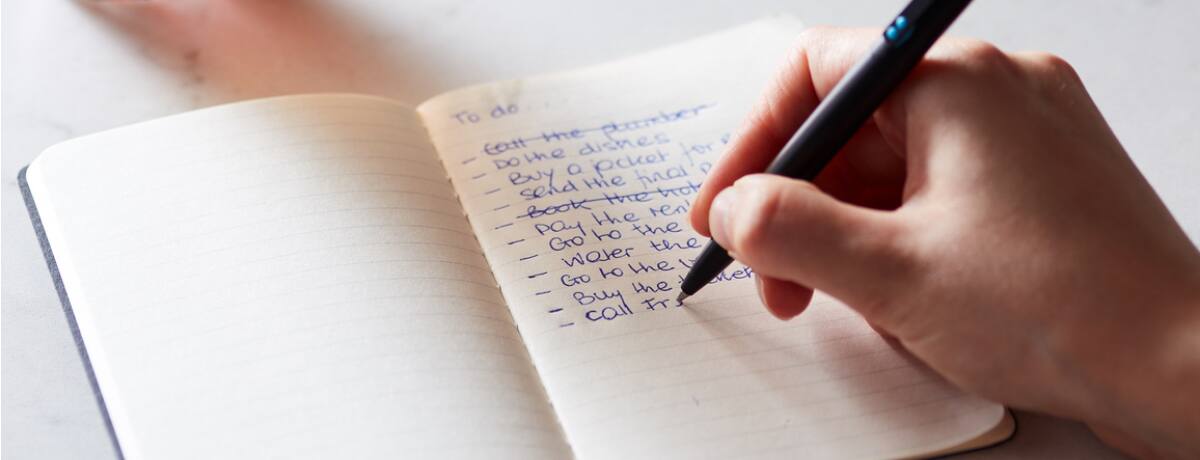 To do...
- Call the plumber
- Do the dishes
- Buy a jacket for
- Send the final
- Book the
- Pay the rent
- Go to the
- Water the
- Go to the
- Buy the
- Call